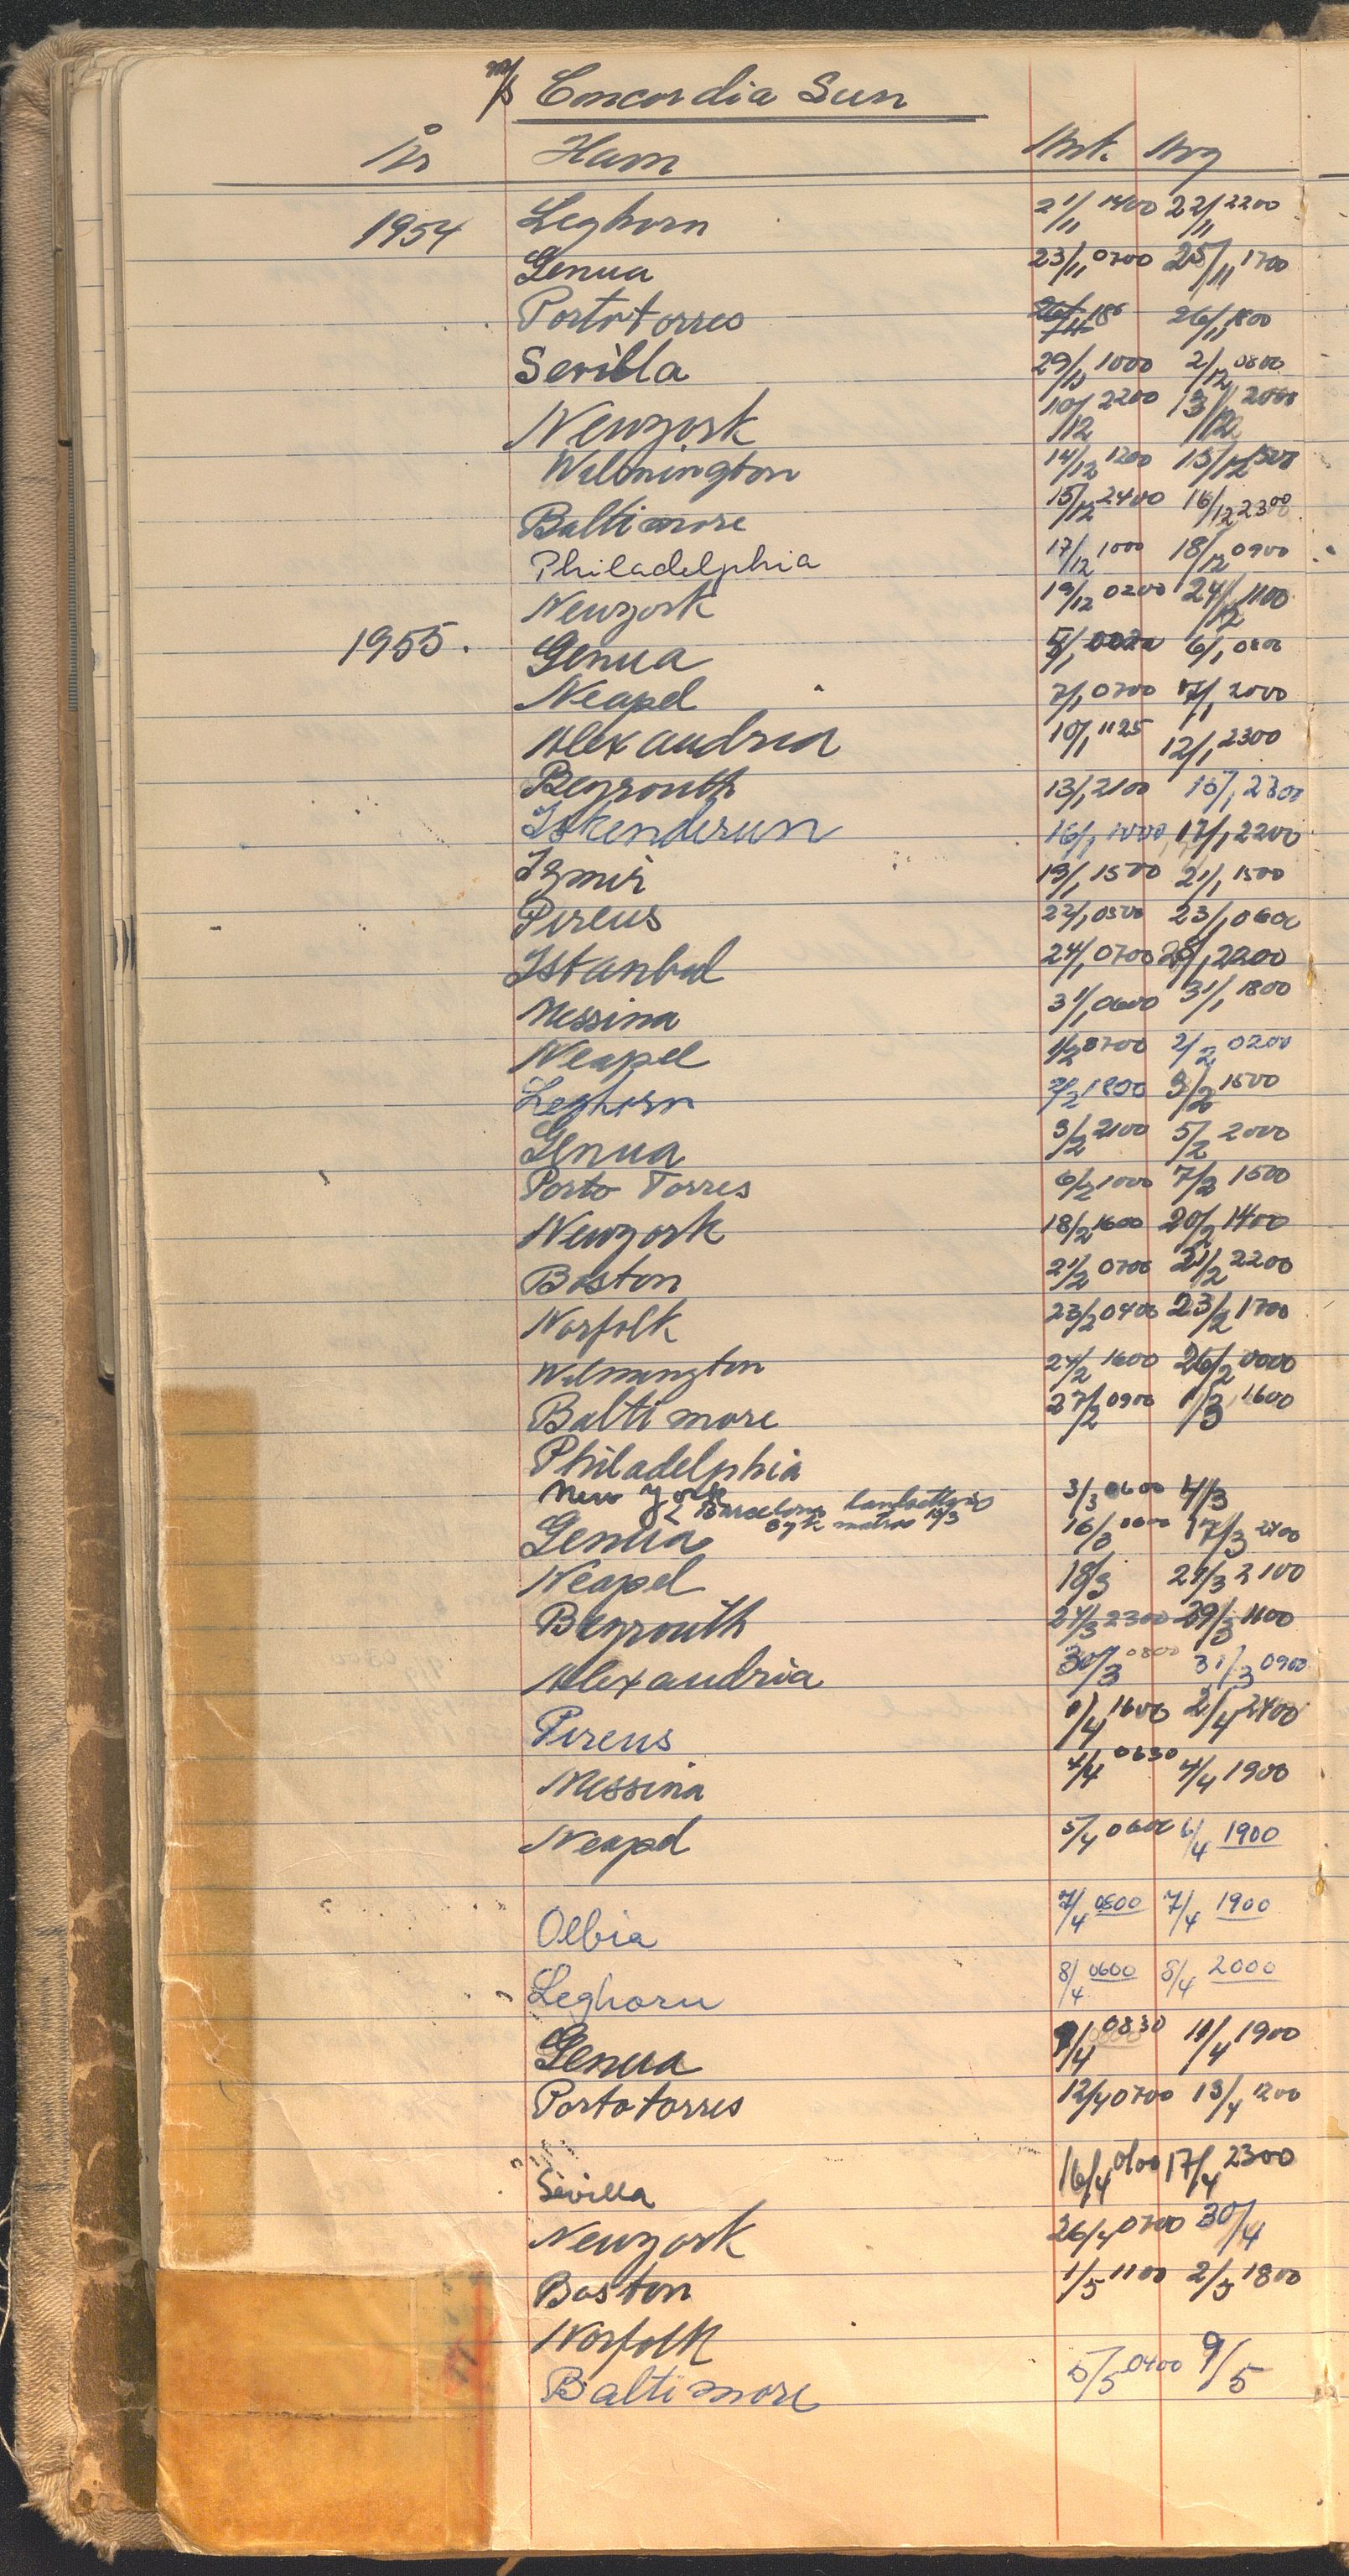 m/s Concordia Sun
År Havn Ank. Avg
1954 Leghorn 21/11 1400 22/11 2200
Genua 23/11 0700 25/11 1700
Porto torres 26/11 1800
Sevilla 29/11 1000 2/12 0800
Newyork 10/12 2200 13/12 2000
Wilmington 14/12 1200 15/12
Baltimore 15/12 2400 16/12 2300
Philadelphia 17/12 1000 18/12 0900
Newyork 19/12 0200 24/12 1100
1955. Genua 5/1 6/1 0800
Neapel 7/1 0700 7/1 2000
Alexandria 10/1 1125 12/1 2300
Beyrouth 13/1 2100 15/1 2300
Iskenderun 16/1 1000 17/1 2200
Izmir 19/1 1500 21/1 1500
Pireus 22/1 0500 23/1 0600
Istanbul 24/1 0700 28/1 2200
Messina 31/1 0600 31/1 1800
Neapel 1/2 0700 2/2 0200
Leghorn 2/2 1800 3/2 1500
Genua 3/2 2100 5/2 2000
Porto Torres 6/2 1000 7/2 1500
Newyork 18/2 1600 20/2 1400
Boston 21/2 0700 21/2 2200
Norfolk 23/2 0400 23/2 1700
Wilmington 24/2 1600 26/2 0000
Baltimore 27/2 0900 1/3 1600
Philadelphia
New York 3/3 0600 4/3
Barcelona
syk matros 15/3
Genua 16/3 0600 17/3 2400
Neapel 18/3 21/3 2100
Beyrouth 24/3 2300 29/3 1100
Alexandria 30/3 0800 31/3 0900
Pireus 1/4 1600 2/4 2400
Messina 4/4 0630 4/4 1900
Neapel 5/4 0600 6/4 1900
Olbia 7/4 0800 7/4 1900
Leghorn 8/4 0600 8/4 2000
Genua 9/4 0830 11/4 1900
Porto torres 12/4 0700 13/4 1200
Sevilla 16/4 0100 17/4 2300
Newyork 26/4 0700 30/4
Boston 1/5 1100 2/5 1800
Norfolk
Baltimore 5/5 0400 9/5